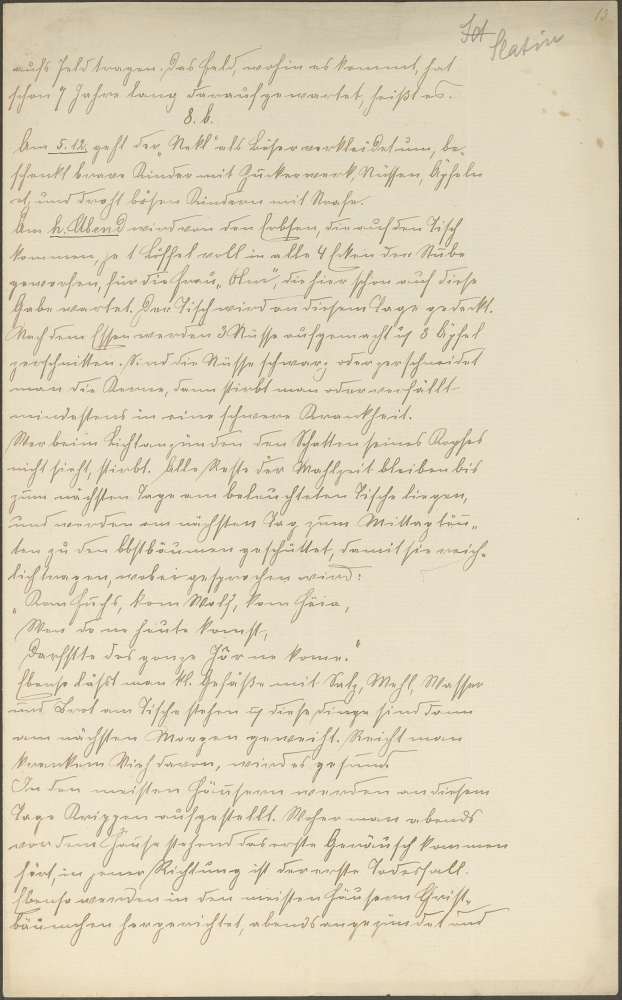 13
Slatin
aufs Feld tragen. Das Feld, wohin es kommt, hat
schon 7 Jahre lang darauf gewartet, heißt es.
8. b.
Am 5.12. geht der „Nekl" als Böser verkleidet um, be-
schenkt brave Kinder mit Zuckerwerk, Nüssen, Äpfeln
et, und droht bösen Kindern mit Strafe.
Am h. Abend wird von den Erbsen, die auf den Tisch
kommen, je 1 Löffel voll in alle 4 Ecken der Stube
geworfen, für die Frau, die hier schon auf diese
Gabe wartet. Der Tisch wird an diesem Tage gedeckt.
Nach dem Essen werden 3 Nüsse aufgemacht u 3 Äpfel
zerschnitten. Sind die Nüsse schwarz oder zerschneidet
man die Kerne, dann stirbt man oder verfällt
mindestens in eine schwere Krankheit.
Wer beim Lichtanzünden den Schatten seines Kopfes
nicht sieht, stirbt. Alle Reste der Mahlzeit bleiben bis
zum nächsten Tage am beleuchteten Tische liegen,
und werden am nächsten Tag zum Mittagläu-
ten zu den Obstbäumen geschüttet, damit sie reich-
lich tragen, wobei gesprochen wird:
„Kom Fuchs, kom Wolf, kom
Wen do ne heute komst,
Darfste des gonze Jōr ne kome."
Ebenso läßt man kl. Gefäße mit Salz, Mehl, Wasser
und Brot am Tische stehen u diese Dinge sind dann
am nächsten Morgen geweiht. Reicht man
krankem Vieh davon, wird es gesund.
In den meisten Häusern werden an diesem
Tage Krippen aufgestellt. Woher man abends
vor dem Hause stehend das erste Geräusch kommen
hört, in jener Richtung ist der erste Todesfall.
Ebenso werden in den meisten Häusern Christ-
bäumchen hergerichtet, abends angezündet und